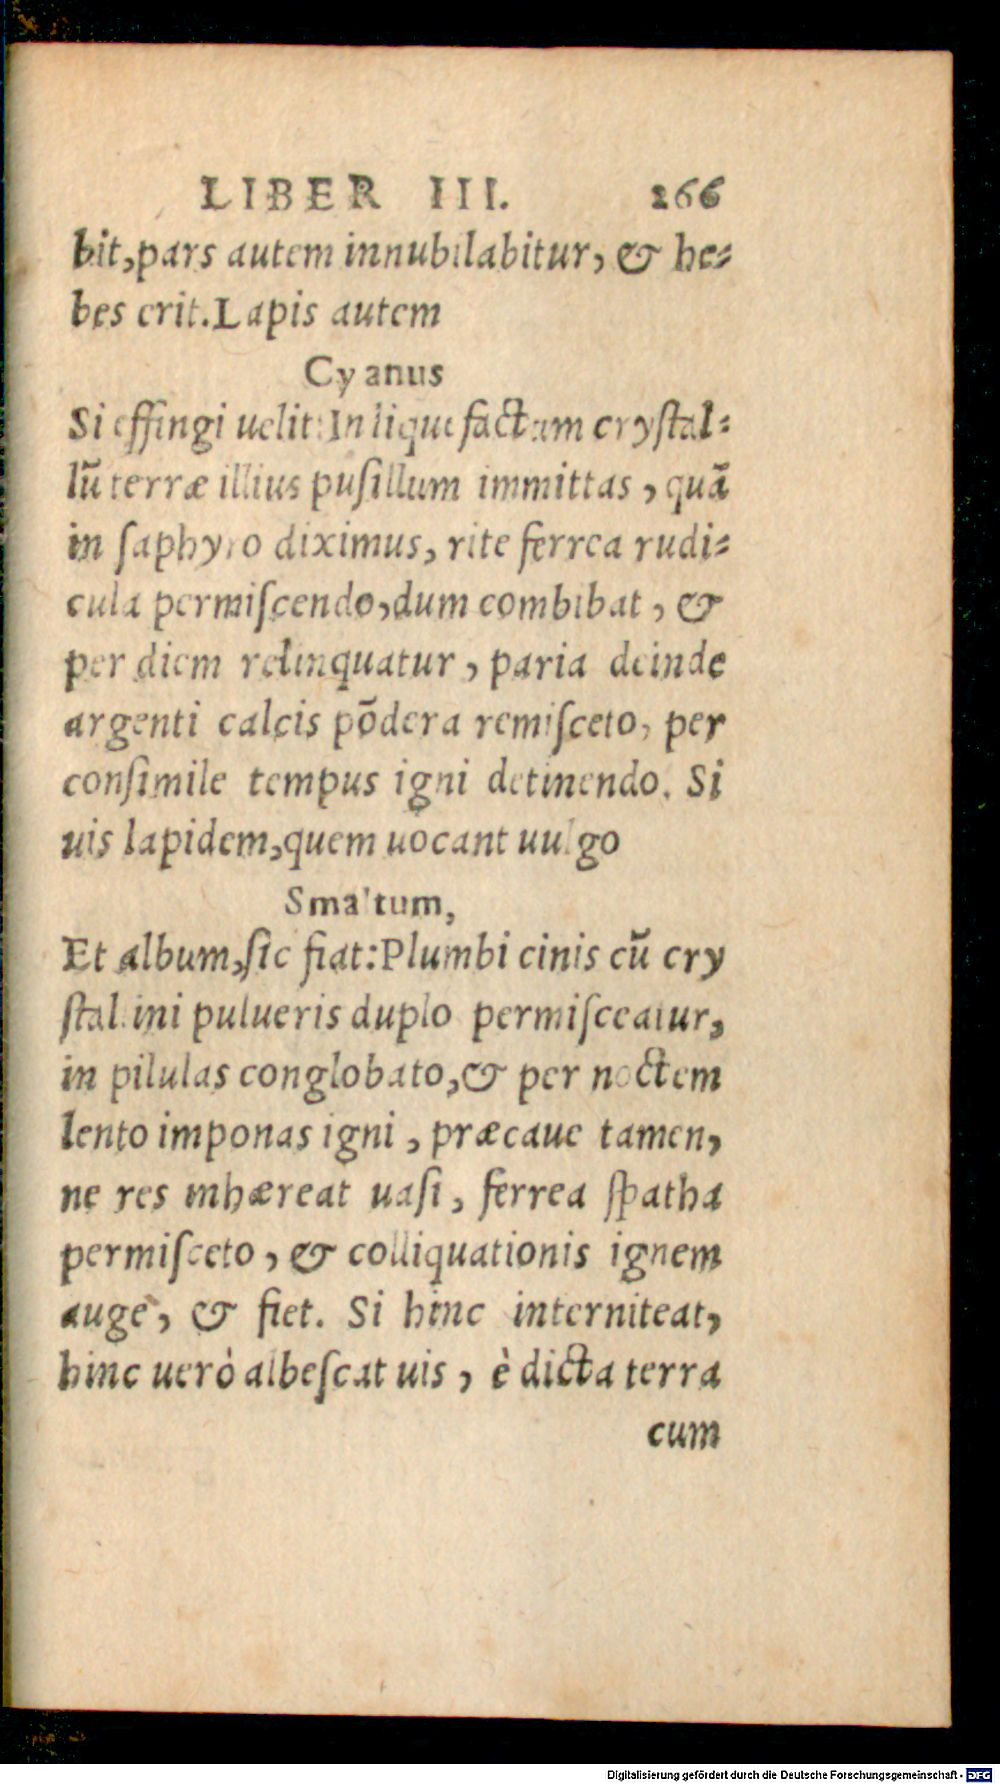 LIBER III. 266
bit, pars autem innubilabitur, & he-
bes erit. Lapis autem
Cyanus
Si effingi uelit: In liquefactum crystal-
lū terræ illius pusillum immittas, quā
in saphyro diximus, rite ferrea rudi-
cula permiscendo, dum combibat, &
per diem relinquatur, paria deinde
argenti calcis pōdera remisceto, per
consimile tempus igni detinendo. Si
uis lapidem, quem uocant uulgo
Smaltum,
Et album, sic fiat: Plumbi cinis cū cry
stallini pulueris duplo permisceatur,
in pilulas conglobato, & per noctem
lento imponas igni, præcaue tamen,
ne res inhæreat uasi, ferrea spatha
permisceto, & colliquationis ignem
auge, & fiet. Si hinc interniteat,
hinc uerò albescat uis, è dicta terra
cum
Digitalisierung gefördert durch die Deutsche Forschungsgemeinschaft - DFG